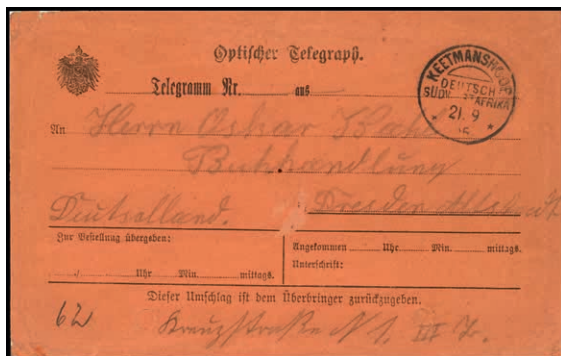 Optischer Telegraph.
Telegramm Nr. aus
KEETMANSHOOP
DEUTSCH
SÜDWESTAFRIKA
21.9
An Herrn Oskar
Buchhandlung
Deutschland. Dresden Altstadt
Zur Bestellung übergeben:
Uhr Min. mittags.
Angekommen Uhr Min. mittags.
Unterschrift:
Dieser Umschlag ist dem Überbringer zurückzugeben.
62 Kreuzstraße N 1. III